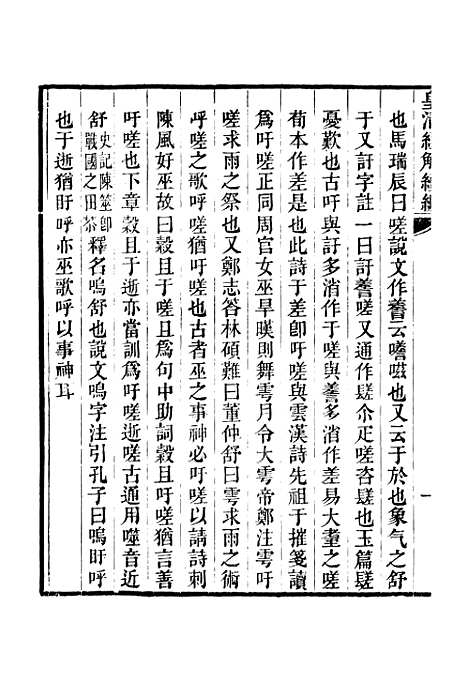 皇清經解續編
一
也馬瑞辰曰嗟說文作𧬨云嗞也又云于於也象气之舒
于又訏字註一曰訏𧬨嗟又通作䰈尒疋嗟咨䰈也玉篇䰈
憂歎也古吁與訏多消作于嗟與𧬨多消作差易大耋之嗟
荀本作差是也此詩于差卽吁嗟與雲漢詩先祖于摧箋讀
爲吁嗟正同周官女巫旱暵則舞雩月令大雩帝鄭注雩吁
嗟求雨之祭也又鄭志答林碩難曰董仲舒曰雩求雨之術
呼嗟之歌呼嗟猶吁嗟也古者巫之事神必吁嗟以請詩刺
陳風好巫故曰穀且于嗟且爲句中助詞穀且吁嗟猶言善
吁嗟也下章穀且于逝亦當訓爲吁嗟逝嗟古通用噬音近
舒史記陳筮卽戰國之田荼釋名嗚舒也說文嗚字注引孔子曰嗚盱呼
也于逝猶盱呼亦巫歌呼以事神耳